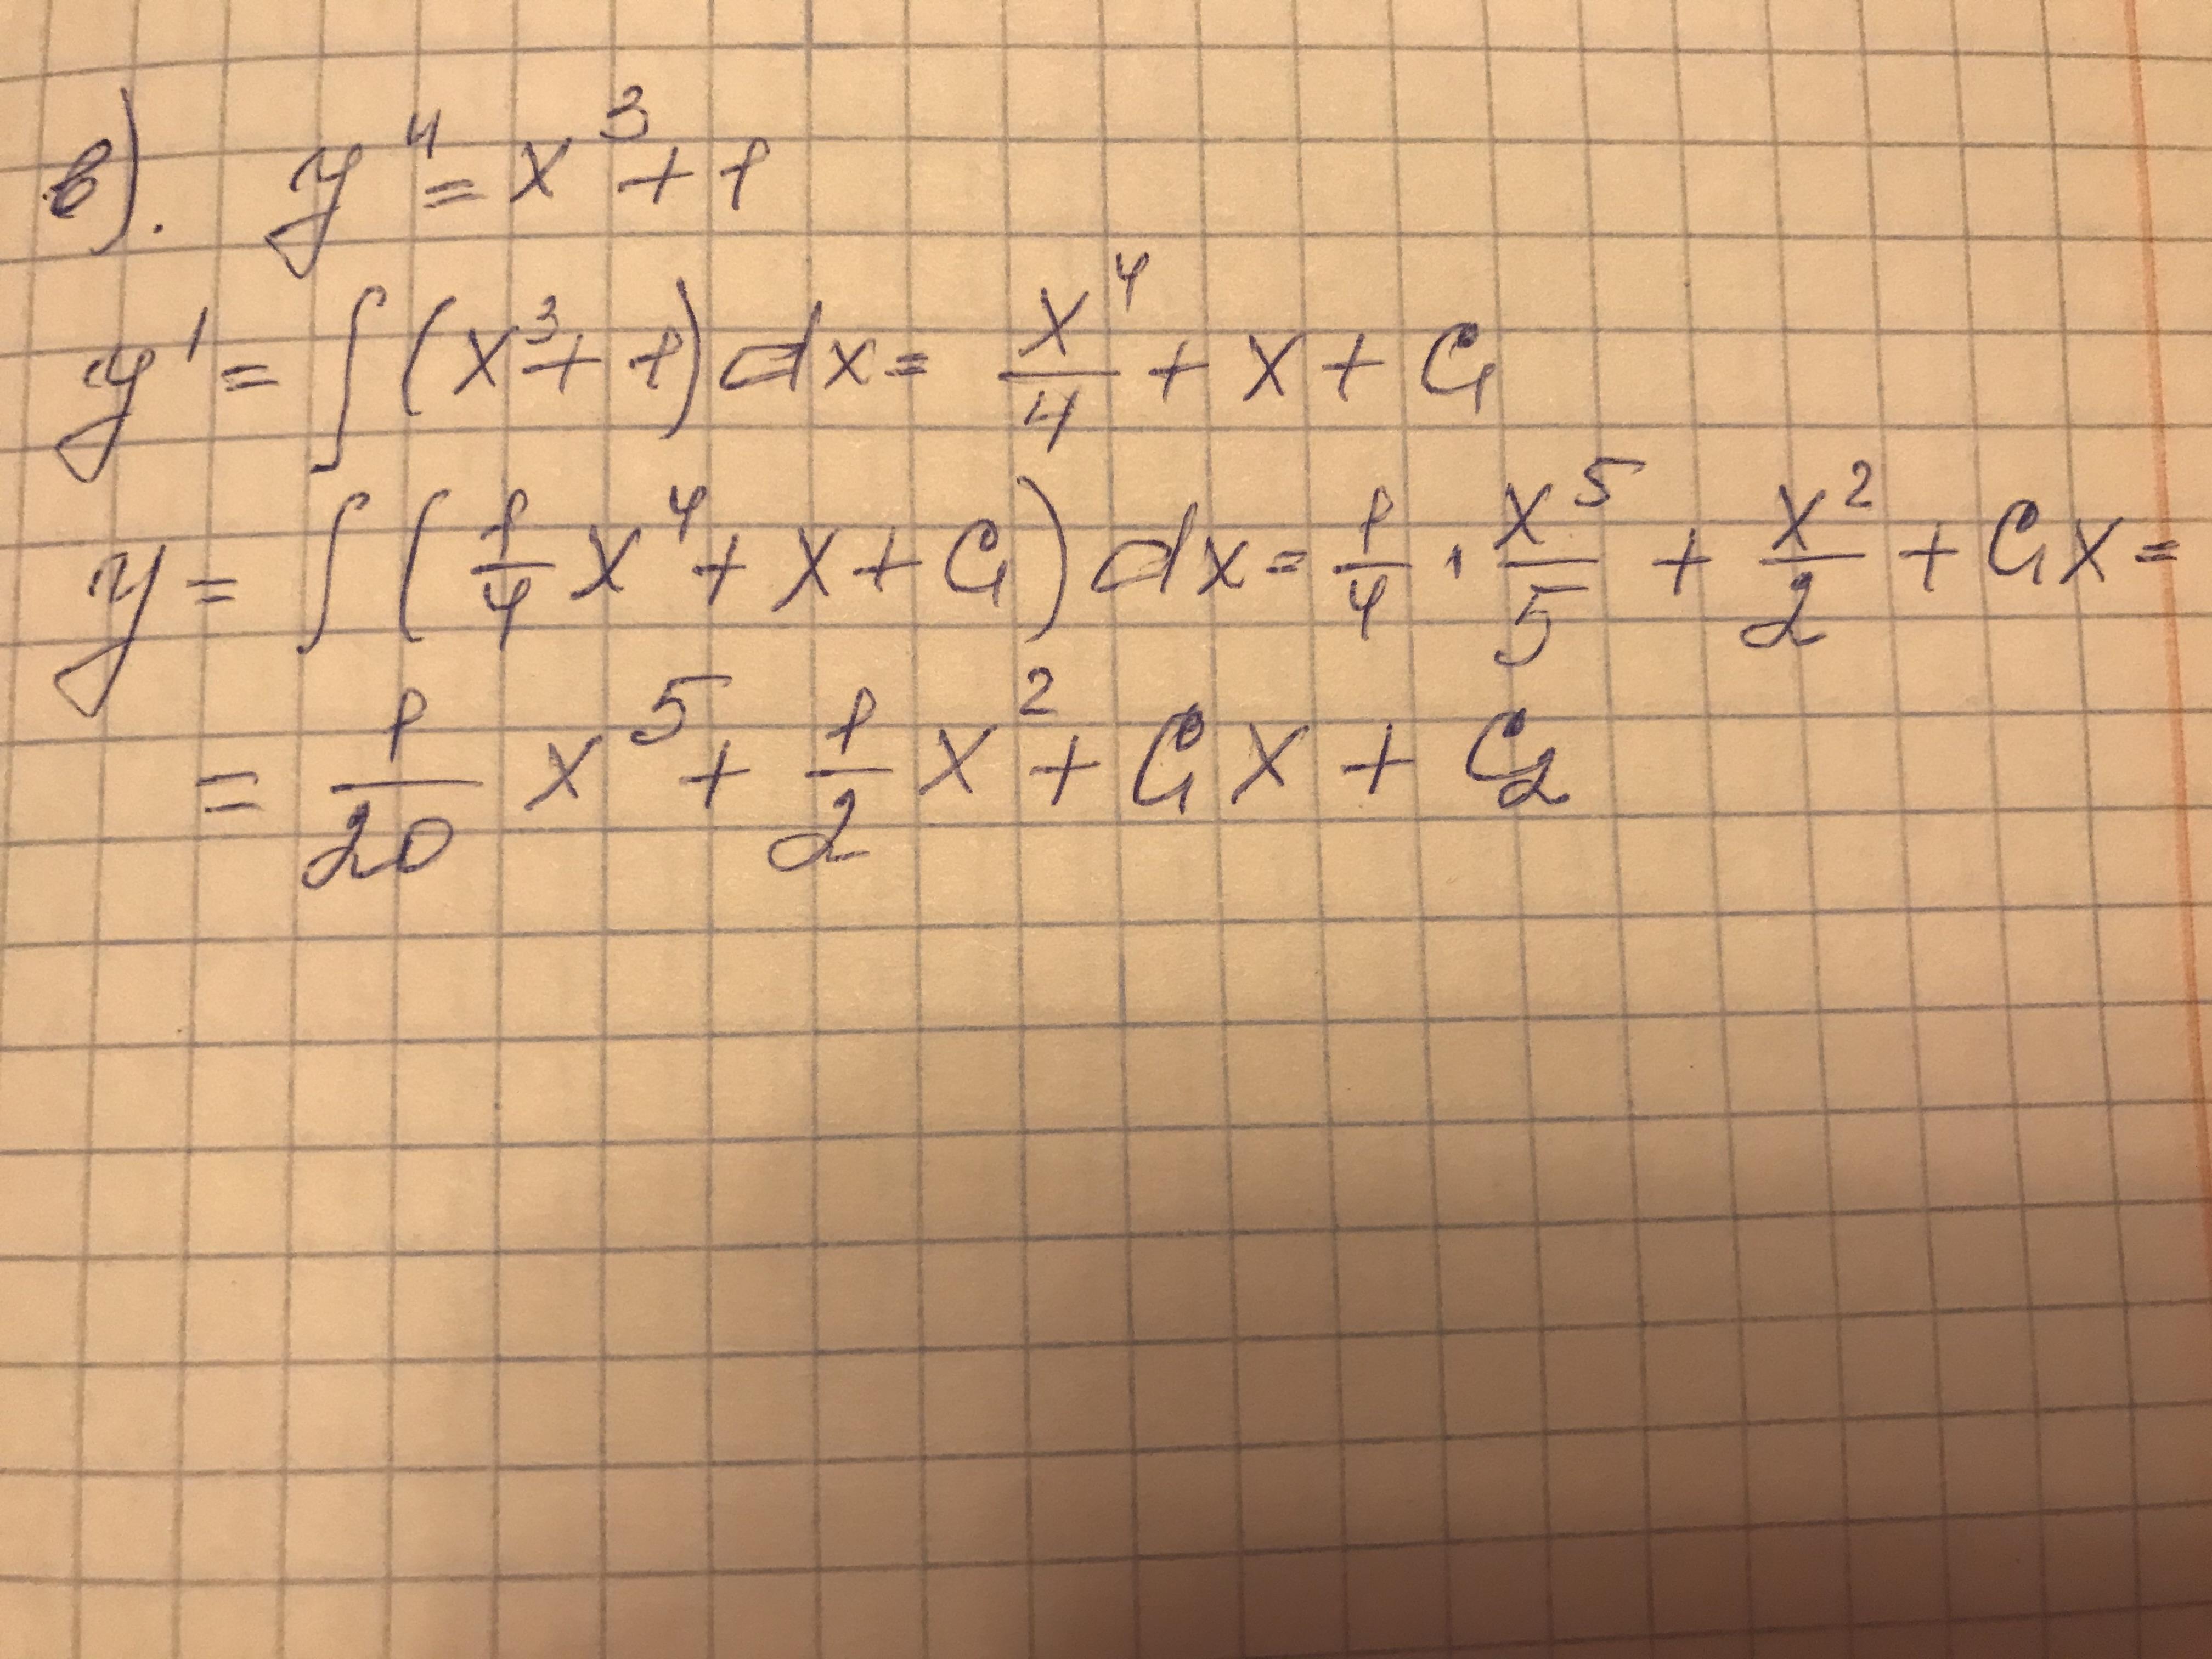 в). y'' = x³ + 1
y' = ∫(x³ + 1)dx = x⁴/4 + x + C₁
y = ∫(1/4 x⁴ + x + C₁)dx = 1/4 · x⁵/5 + x²/2 + C₁x =
= 1/20 x⁵ + 1/2 x² + C₁x + C₂